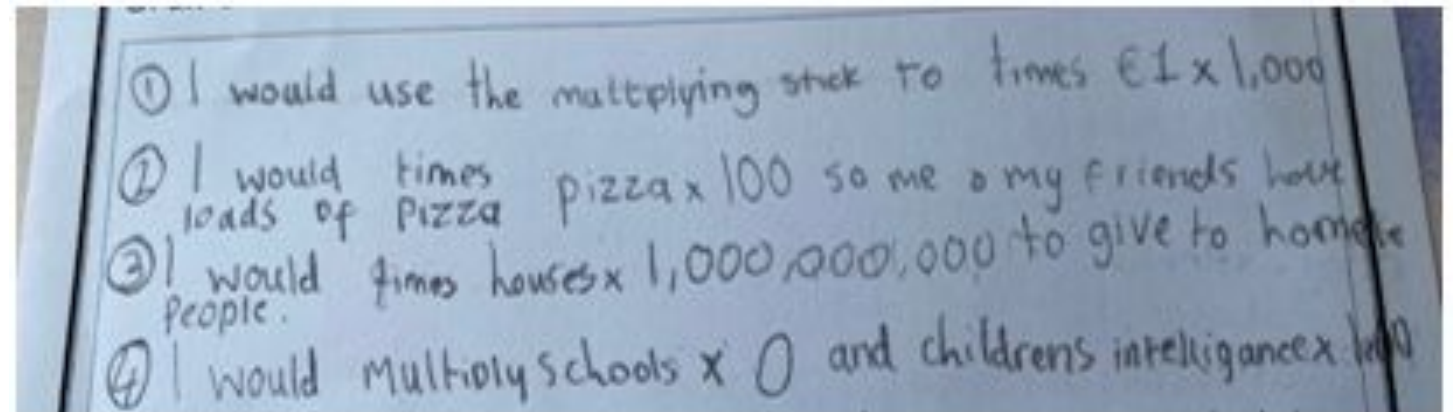 ① I would use the multplying stick to times €1 x 1,000
② I would times pizza x 100 so me & my friends have
loads of Pizza
③ I would times houses x 1,000,000,000 to give to
People.
④ I would Multiply schools x 0 and childrens intelligance x